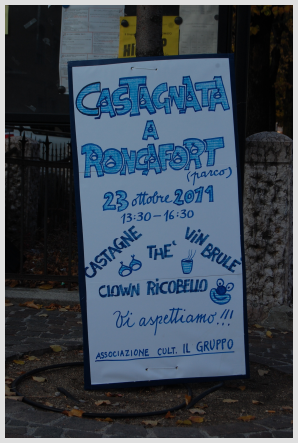 CASTAGNATA
A
RONCAFORT
(parco)
23 ottobre 2011
13:30-16:30
CASTAGNE THE' VIN BRULE'
CLOWN RICOBELLO
Vi aspettiamo!!!
ASSOCIAZIONE CULT. IL GRUPPO